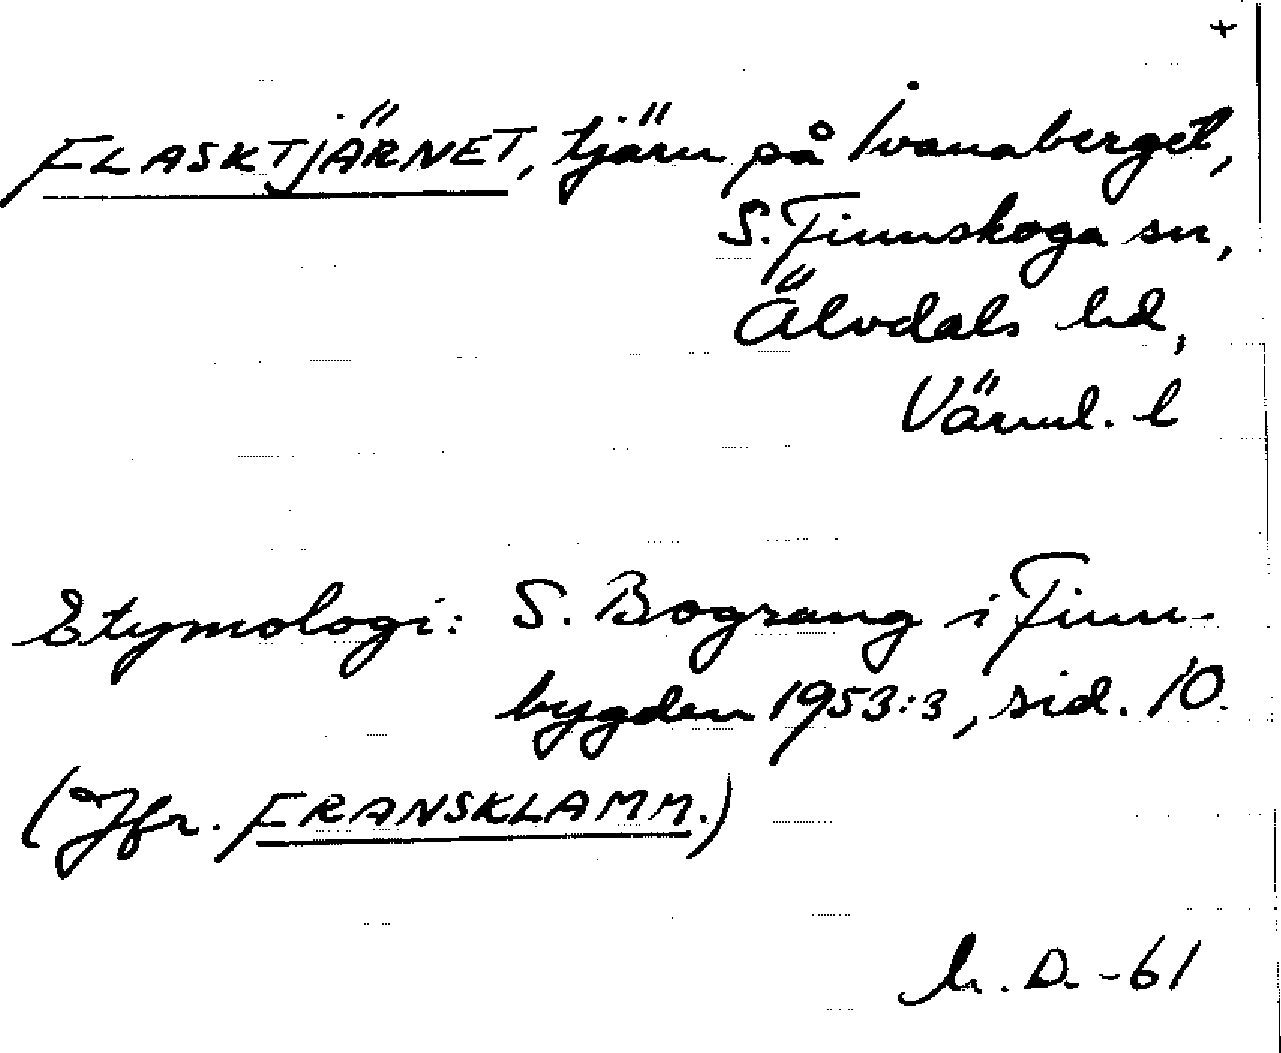 +
FLASKTJÄRNET, tjärn på Ivanaberget,
S. Finnskoga sn,
Älvdals hd,
Värml. l
Etymologi: S. Bograng i Finn-
bygden 1953:3, sid. 10.
(Jfr. FRANSKLAMM.)
h. D. -61